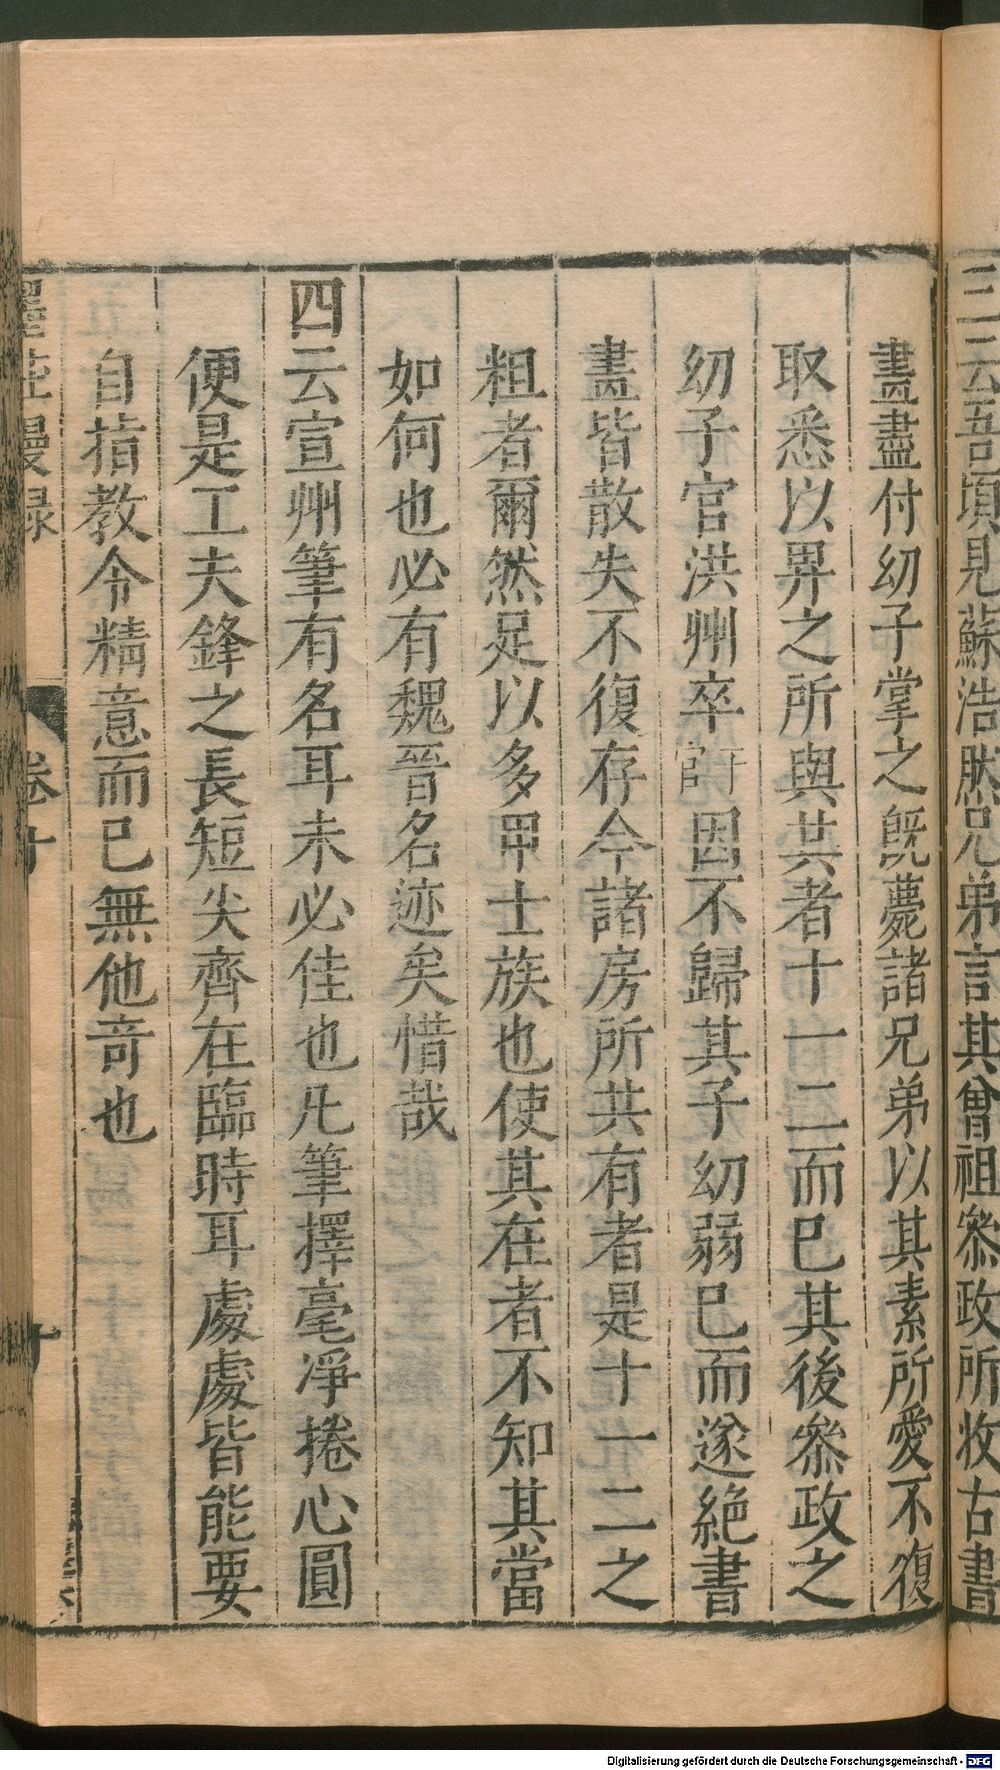 三云吾頃見蘇浩然兄弟言其曾祖叅政所收古書
畫盡付幼子掌之旣薨諸兄弟以其素所愛不復
取悉以畀之所與共者十一二而已其後叅政之
幼子官洪州卒于官因不歸其子幼弱已而遂絕書
畫皆散失不復存今諸房所共有者是十一二之
粗者爾然足以多甲士族也使其在者不知其當
如何也必有魏晉名迹矣惜哉
四云宣州筆有名耳未必佳也凡筆擇毫凈捲心圓
便是工夫鋒之長短尖齊在臨時耳處處皆能要
自指教令精意而已無他竒也
墨莊漫录
卷十
十
Digitalisierung gefördert durch die Deutsche Forschungsgemeinschaft - DFG